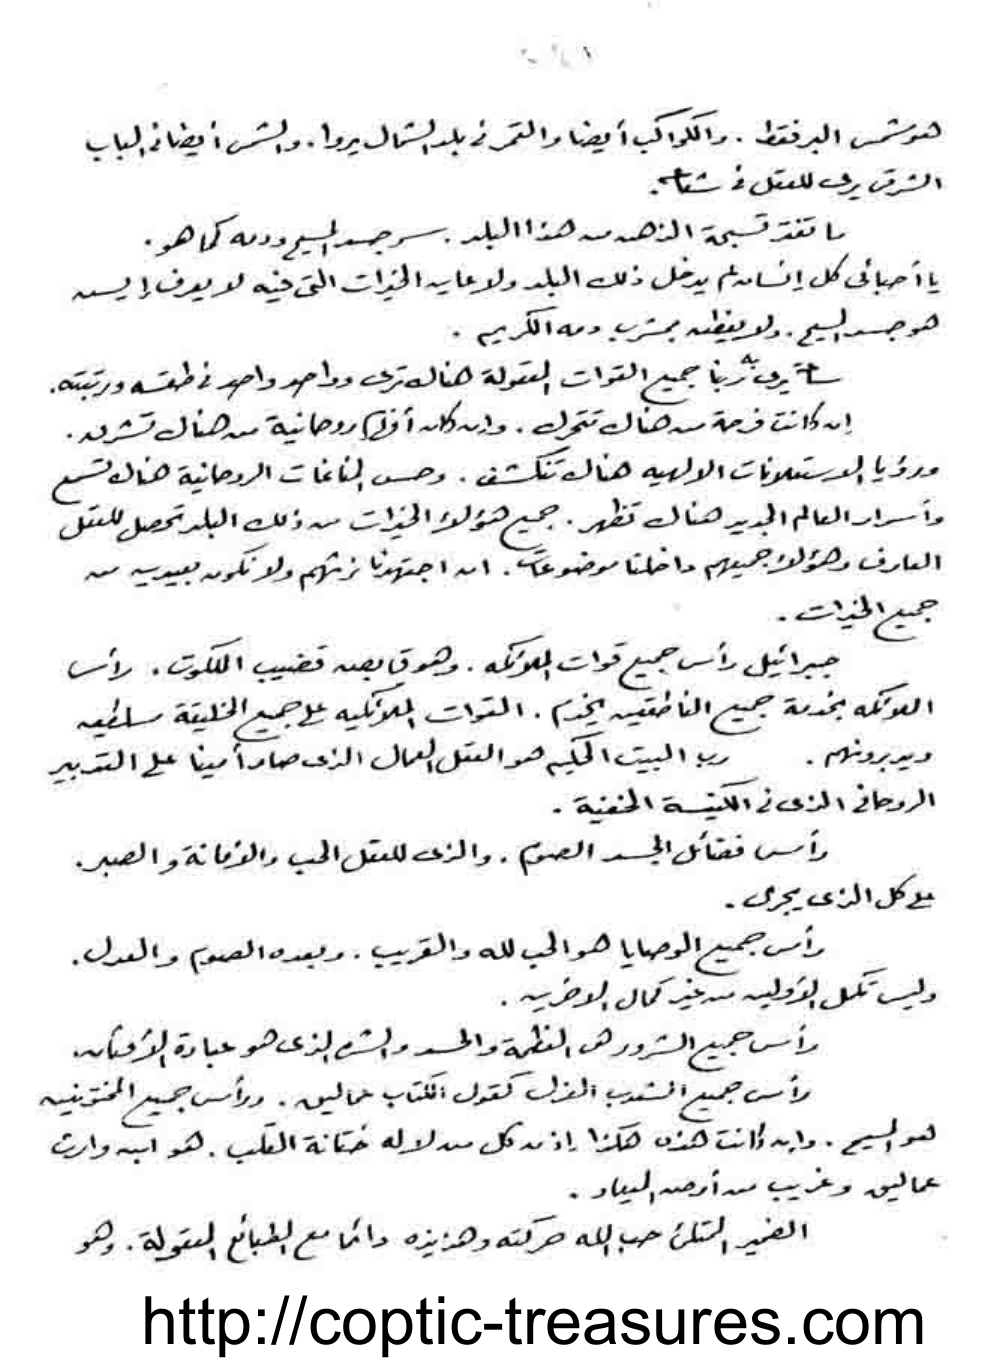 هو شمس البر فقط . والكواكب أيضا والقمر فى بلد الشمال يروا . والشمس أيضا فى الباب
الشرقى يرى للعقل فى
ما تفتر تسبحة الذهن من هذا البلد . سر جسد المسيح ودمه كما هو .
يا أحبائى كل إنسان لم يدخل ذلك البلد ولا عاين الخيرات التى فيه لا يعرف إيسـ
هو جسد المسيح . ولا يفطن بمشرب دمه الكريم .
جميع القوات المعقولة هناك ترى وواحد واحد فى طقسه ورتبته .
إن كانت فرحة من هناك تتحرك . وإن كان أفراح روحانية من هناك تشرق .
ورؤيا الاستعلانات الالهيه هناك تنكشف . وحس المناغات الروحانية هناك تسمع
وأسرار العالم الجديد هناك تظهر . جميع هؤلاء الخيرات من ذلك البلد تحصل للعقل
العارف وهؤلاء جميعهم داخلنا موضوعات . ان اجتهدنا نرثهم ولا نكون بعيدين من
جميع الخيرات .
جبرائيل رأس جميع قوات الملائكه . وهو قابض قضيب الملكوت . رأس
الملائكه بخدمة جميع الناطقين يخدم . القوات الملائكيه على جميع الخليقة مسلطين
ويدبرونهم . رب البيت الحكيم هو العقل العمال الذى صار أمينا على التدبير
الروحانى الذى فى الكنيسة الخفية .
رأس فضائل الجسد الصوم . والذى للعقل الحب والأمانة والصبر .
على كل الذى يجرى .
رأس جميع الوصايا هو الحب لله والقريب . وبعده الصوم والعدل .
وليس تكمل الأولين من غير كمال الاخرين .
رأس جميع الشرور هى العظمة والحسد والشره الذى هو عبادة الأوثان .
رأس جميع الشعوب الغرل كقول الكتاب عماليق . ورأس جميع المختونين
هو المسيح . وإن كانت هذه هكذا إذن كل من لا له ختانة القلب . هو ابن وارث
عماليق وغريب من أرض الميعاد .
الضمير الممتلئ حب الله حركته وهذيذه دائما مع الطبائع المعقولة . وهو
http://coptic-treasures.com